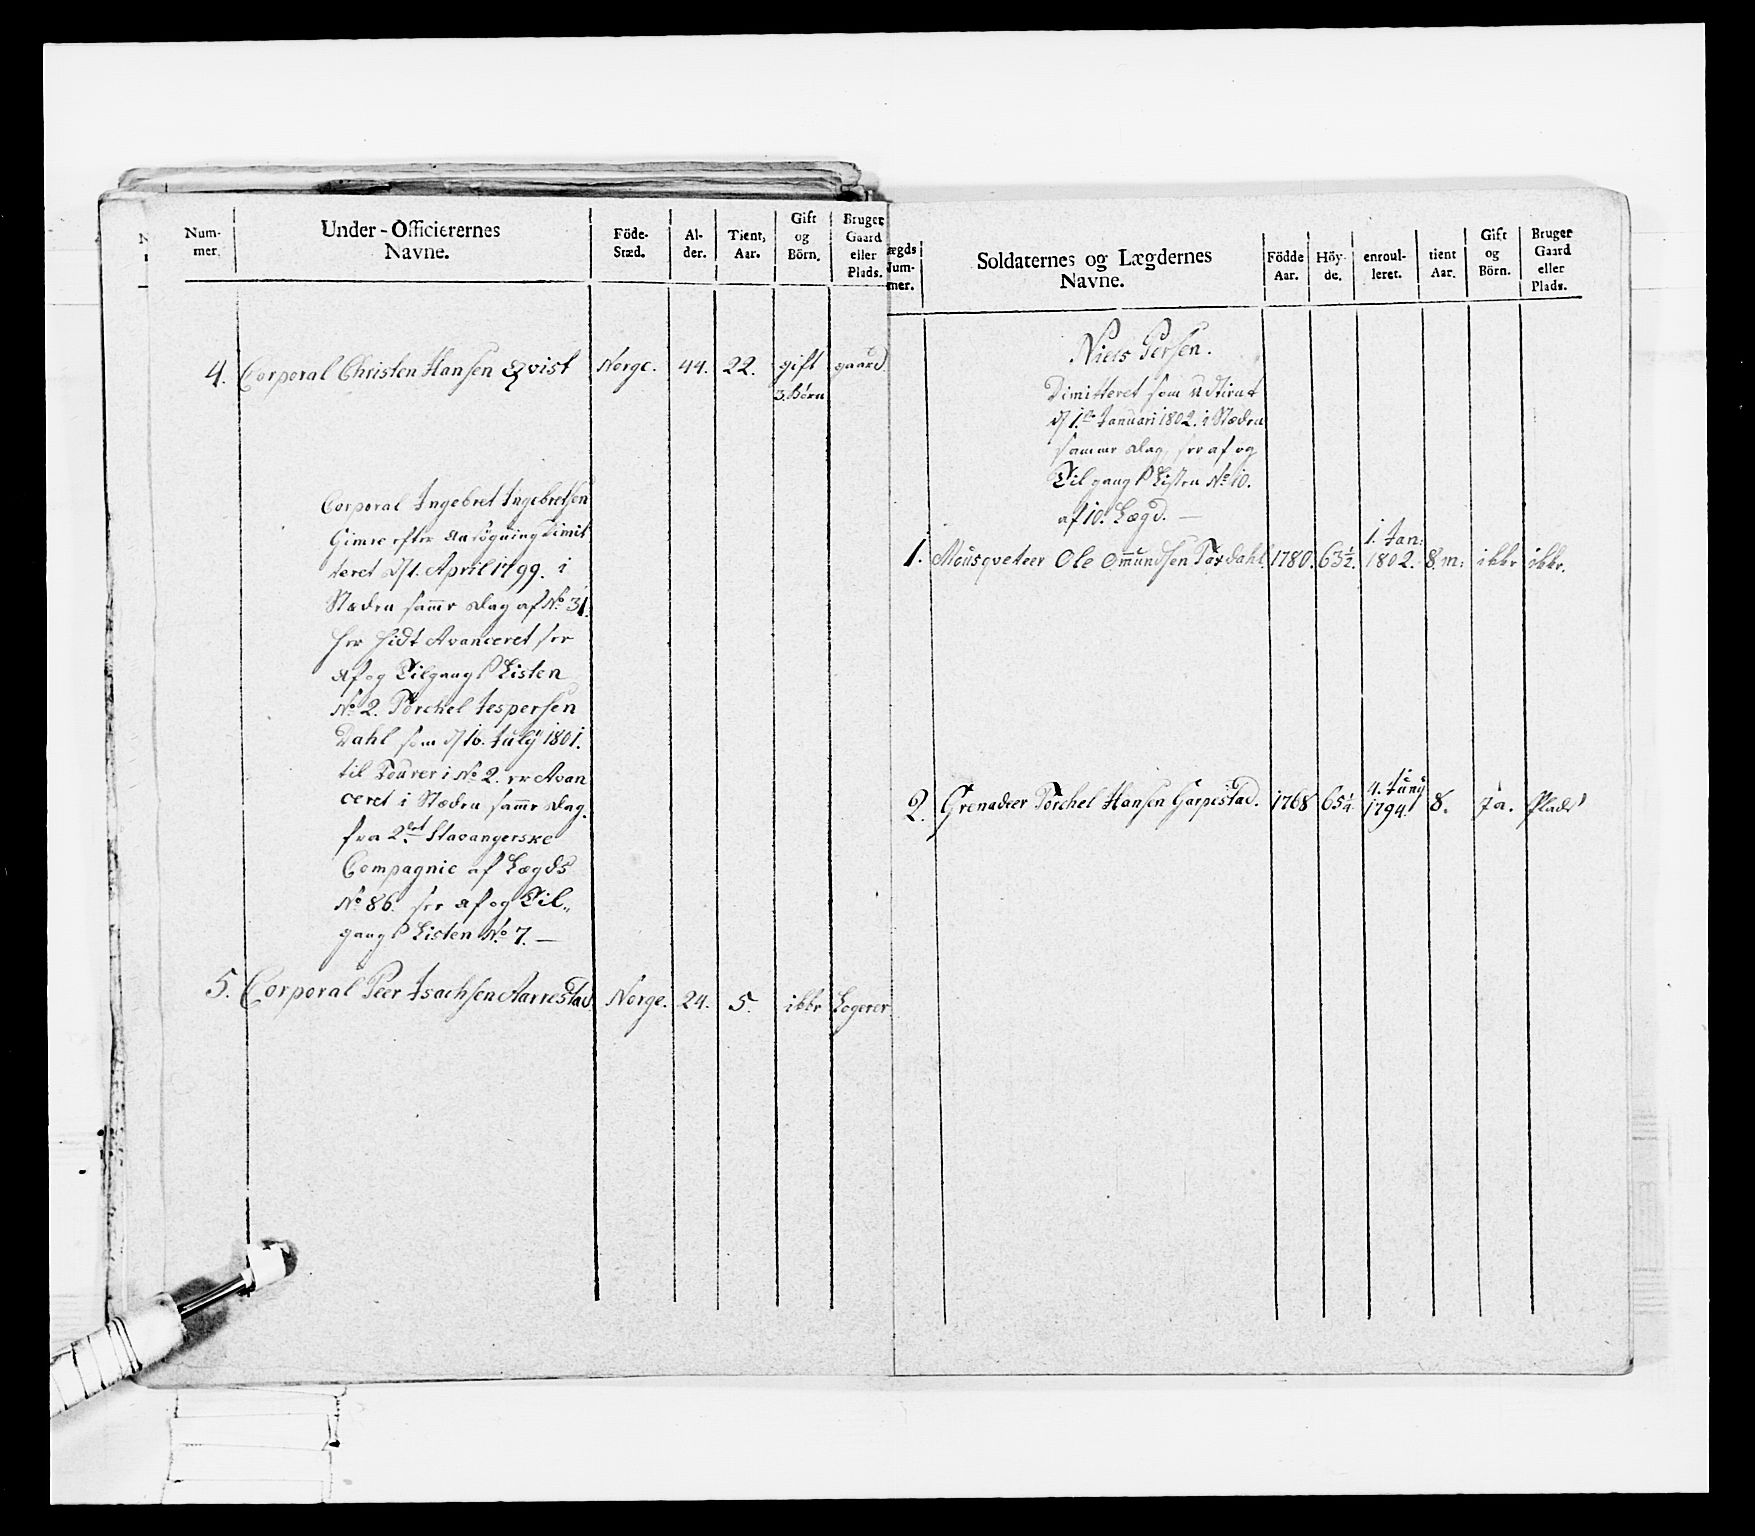 Num-
mer.
Under-Officierernes
Navne.
Föde-
Stæd.
Al-
der.
Tient,
Aar.
Gift
og
Börn.
Bruger
Gaard
eller
Plads.
4. Corporal Christen Hansen Qvist Norge. 44. 22. gift gaard
3. Börn
Corporal Ingebret Ingebretsen
Gimre efter Ansögning Dimit
teret d/1. April 1799. i
Stæden samme Dag af No 31.
her hidt Avanceret see
Af og Tilgangs Listen
No 2. Torchel Jespersen
Dahl som d/16. July 1801.
til Fourer i No 2. er Avan
ceret i Stæden samme Dag.
fra 2det Stavangerske
Compagnie af Lægds
No 86. see Af og Til„
gangs Listen No 7. —
5. Corporal Peer Isachsen Aarrestad Norge. 24. 5. ikke Logerer
ægds
Num-
mer.
Soldaternes og Lægdernes
Navne.
Födde
Aar.
Höy-
de.
enroul-
leret.
tient
Aar.
Gift
og
Börn.
Bruger
Gaard
eller
Plads.
Niels Persen.
Dimitteret som Udtient
d/1.ste Januari 1802. i Stæden
samme Dag, see af og
Tilgangs Listen No 10.
af 10. Lægd. —
1. Jan:
1. Mousqveteer Ole Ommundsen Tordahl 1780. 63½. 1802. 8. m: ikke ikke.
4. Juny
2. Grenadeer Torchel Hansen Garpestad. 1768 65¼. 1794. 8. Ja. Plads